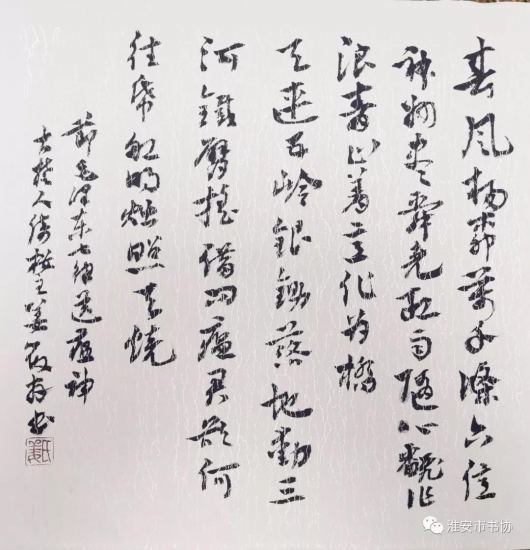 春风杨柳萬千條六億
神州盡舜尧红雨随心翻作
浪青山着意化为橋
天连五岭银锄落地動三
河鐵臂摇借问瘟君欲何
往纸船明烛照天烧
節毛泽东七律送瘟神
古楚人 姜 书
淮安市书协